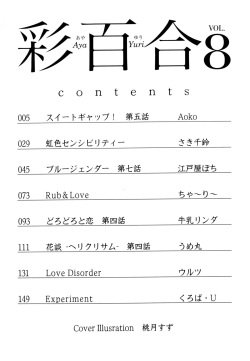 彩百合 VOL. 8
あや Aya ゆり Yuri
contents
005 スイートギャップ! 第五話 Aoko
029 虹色センシビリティー さき千鈴
045 ブルージェンダー 第七話 江戸屋ぽち
073 Rub&Love ちゃ〜り〜
093 どろどろと恋 第四話 牛乳リンダ
111 花談 -ヘリクリサム- 第四話 うめ丸
131 Love Disorder ウルツ
149 Experiment くろば・U
Cover Illusration 桃月すず